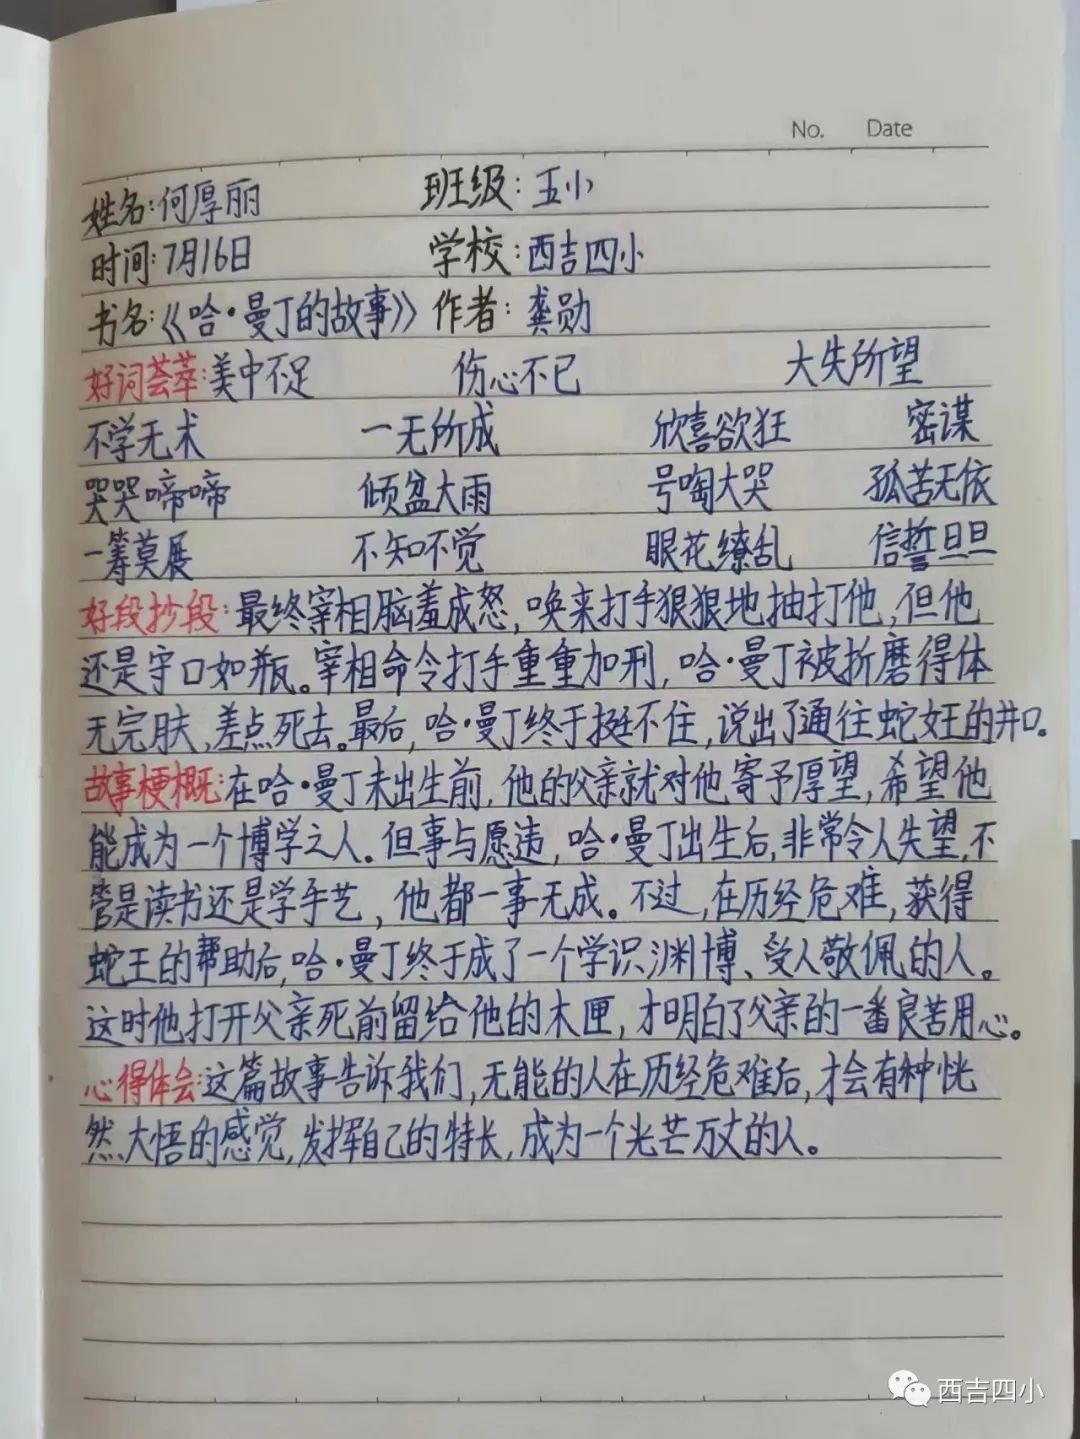 No. Date
姓名:何厚丽 班级:五小
时间:7月16日 学校:西吉四小
书名:《哈·曼丁的故事》 作者:龚勋
好词荟萃:美中不足 伤心不已 大失所望
不学无术 一无所成 欣喜欲狂 密谋
哭哭啼啼 倾盆大雨 号啕大哭 孤苦无依
一筹莫展 不知不觉 眼花缭乱 信誓旦旦
好段抄段:最终宰相脑羞成怒,唤来打手狠狠地抽打他,但他
还是守口如瓶。宰相命令打手重重加刑,哈·曼丁被折磨得体
无完肤,差点死去。最后,哈·曼丁终于挺不住,说出了通往蛇女王的井口。
故事梗概:在哈·曼丁未出生前,他的父亲就对他寄予厚望,希望他
能成为一个博学之人。但事与愿违,哈·曼丁出生后,非常令人失望,不
管是读书还是学手艺,他都一事无成。不过,在历经危难,获得
蛇王的帮助后,哈·曼丁终于成了一个学识渊博、受人敬佩的人。
这时他打开父亲死前留给他的木匣,才明白了父亲的一番良苦用心。
心得体会:这篇故事告诉我们,无能的人在历经危难后,才会有种恍
然大悟的感觉,发挥自己的特长,成为一个光芒万丈的人。
西吉四小